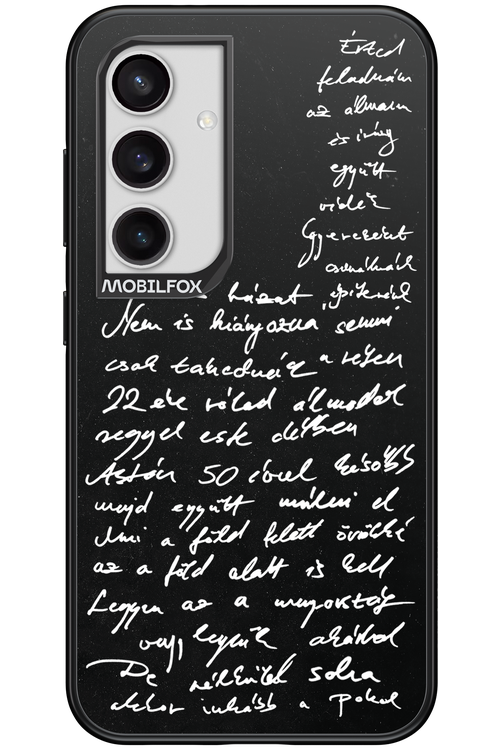 Érted
feladnám
az álmaim
és így
együtt
vidék
Gyerekeket
csinálnánk
MOBILFOX
házat építenék
Nem is hiányozna semmi
csak takarodnánk a réten
22 éve rólad álmodok
reggel este délben
Aztán 50 évvel később
majd együtt múlni el
Ami a föld felett örökké
az a föld alatt is kell
Legyen az a mennyország
vagy legyünk akárhol
De nélküled soha
akkor inkább a pokol